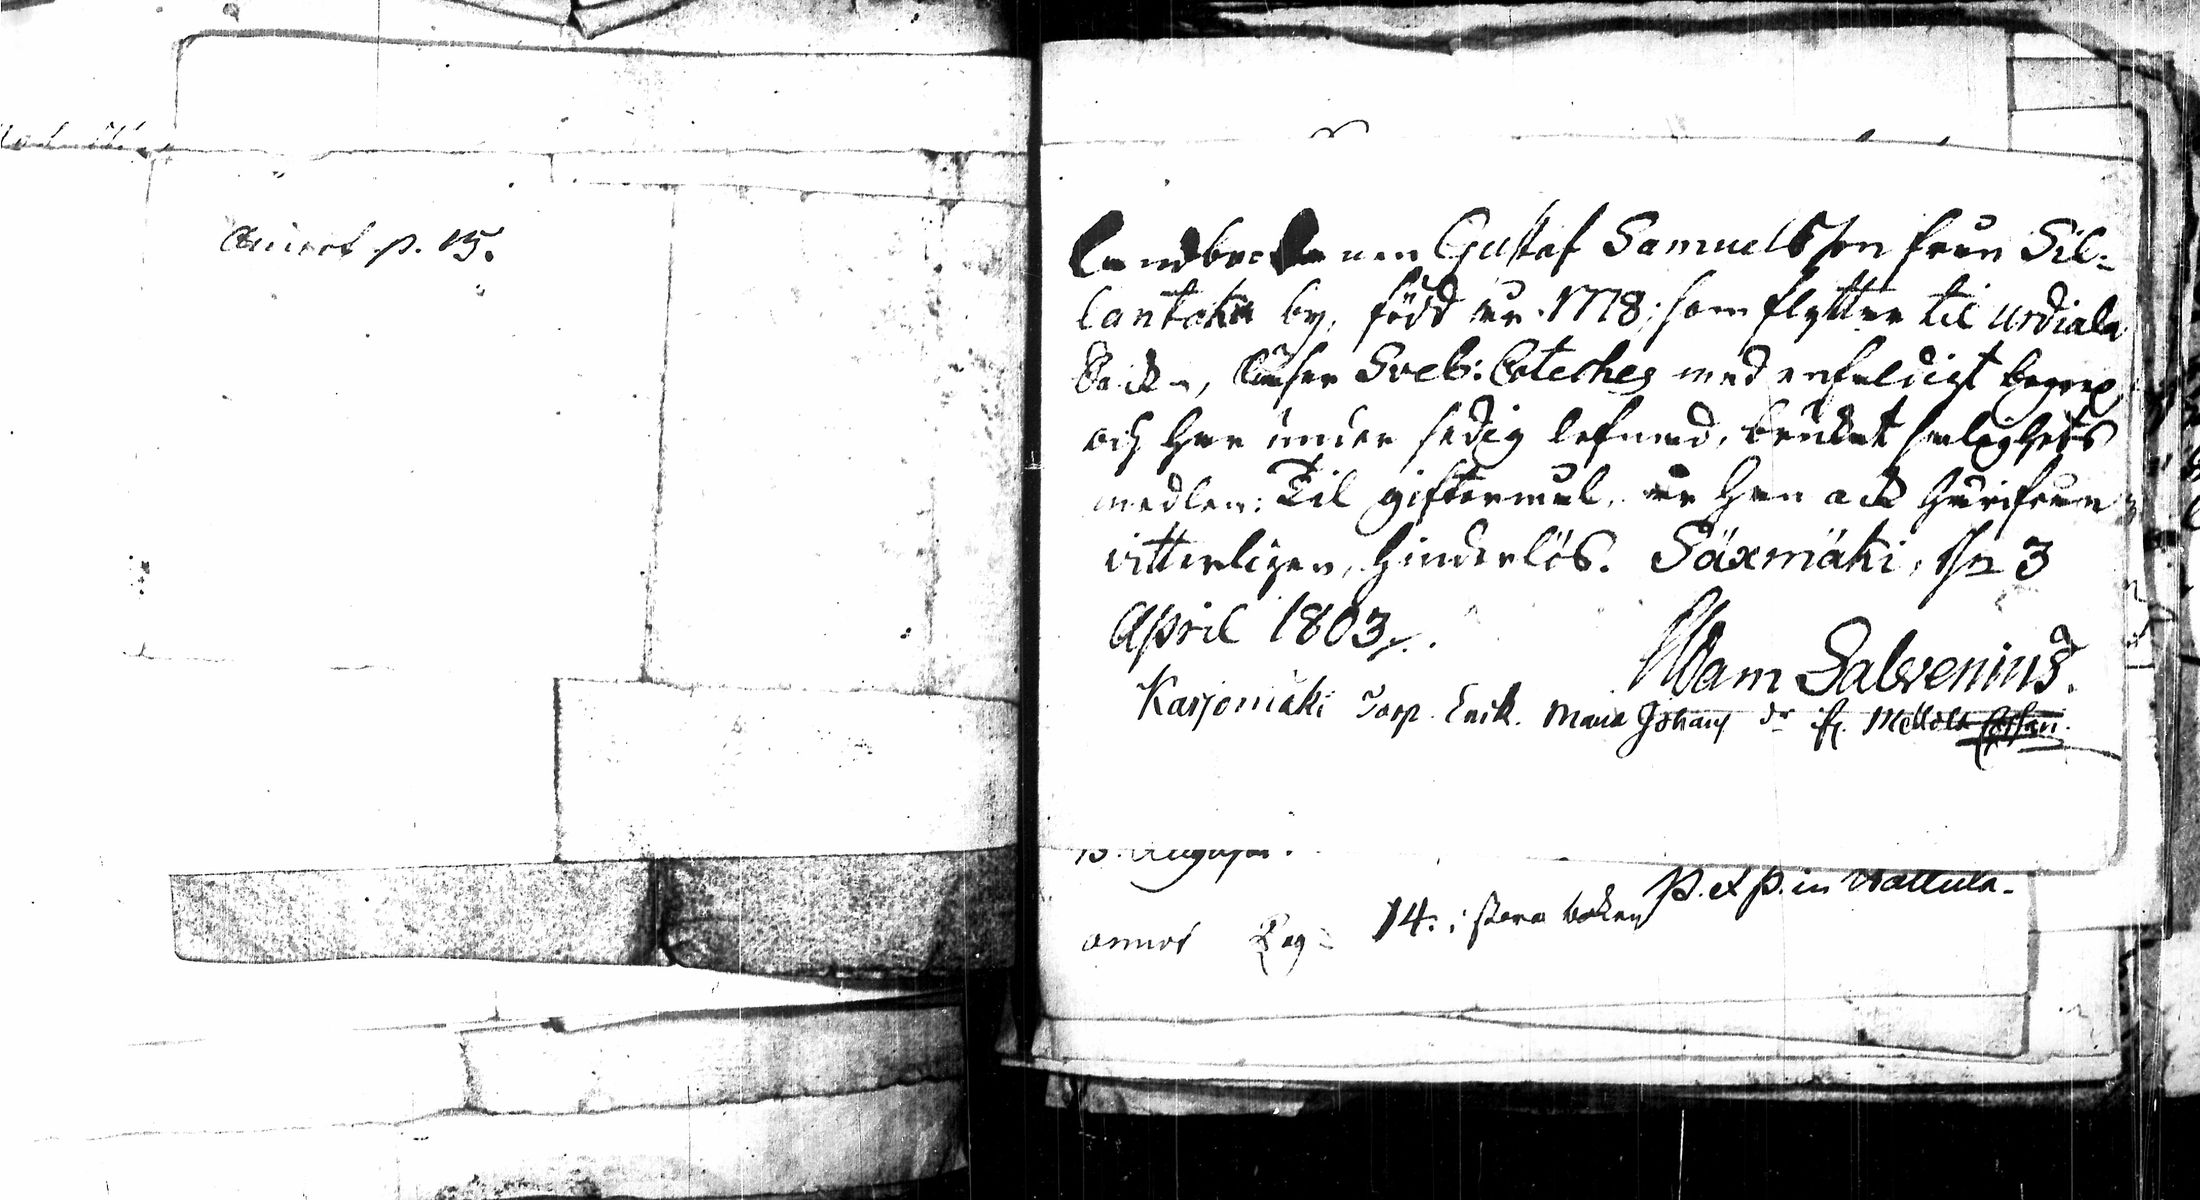 Annot p. 15.
Landbondesonen Gustaf Samuelsson från Sil-
lantaka by, född år 1778; som flyttar til Urdiala
Sockn, läser Sveb: Cateches med enfaldigt begrep
och har under sedig lefnad, brukat salighets
medlen: Til giftermål är han ock härifrån
vitterligen, hinderlös. Säxmäki, d 3
April 1803.
Adam Salvenius.
Karjomäki Torp Erik. Maria Johans dr
13. Augusti.
P. et P. in Wallula.
annot Pag: 14. i stora boken